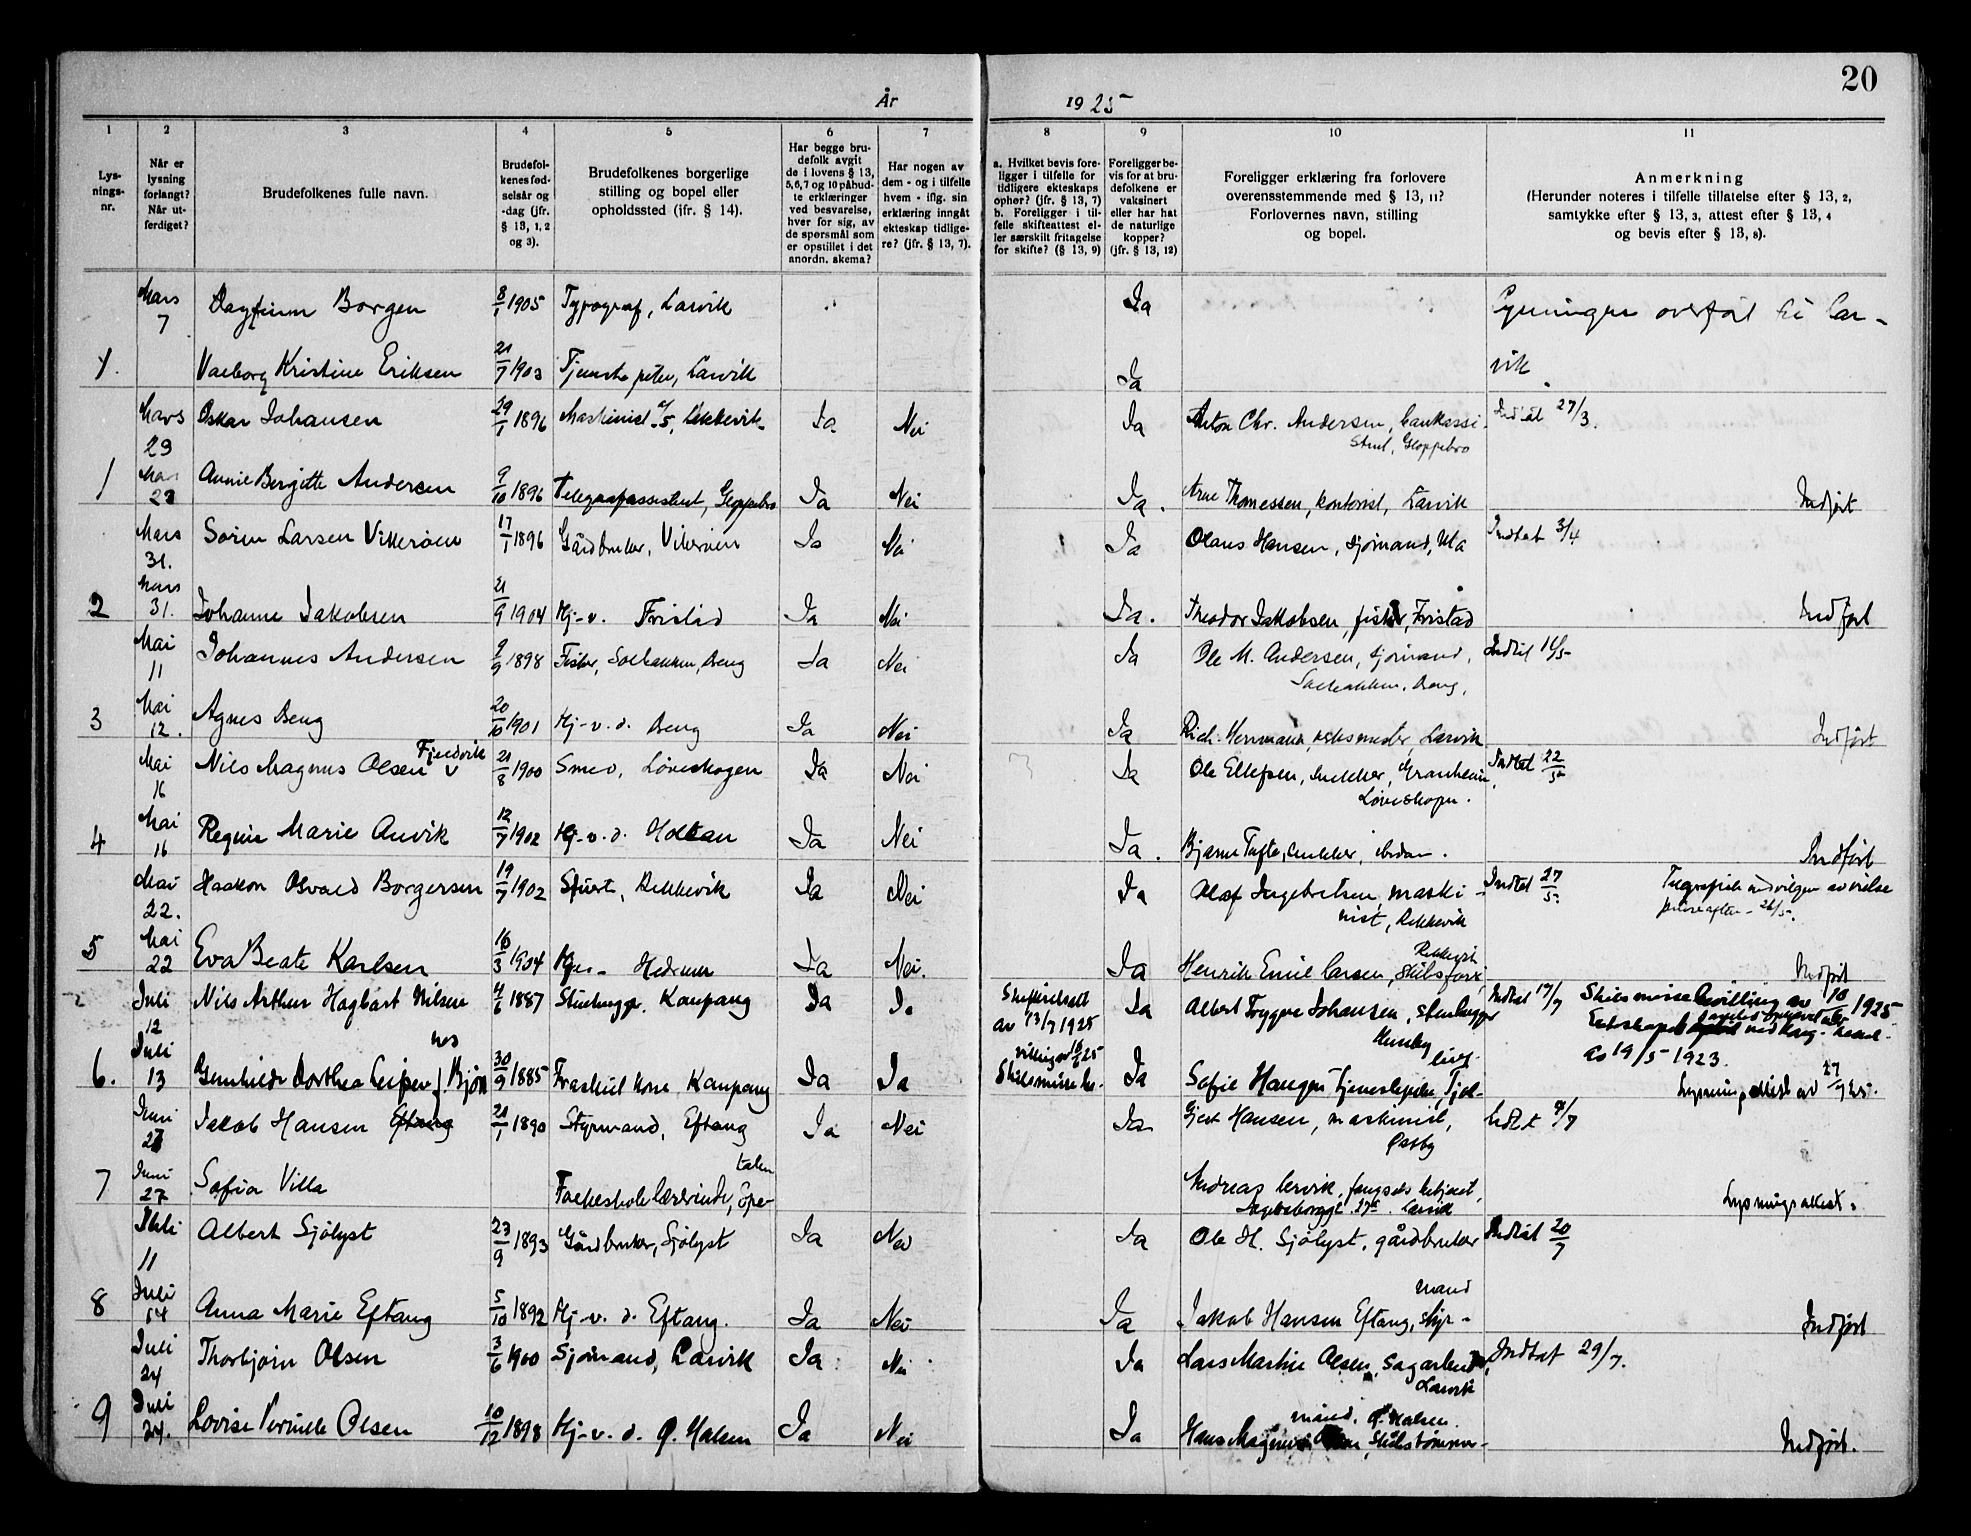 20
År 1925
1
2
3
4
5
6
7
8
9
10
11
Lys-
nings-
nr.
Når er
lysning
forlangt?
Når ut-
ferdiget?
Brudefolkenes fulle navn.
Brudefol-
kenes fød-
selsår og
-dag (jfr.
§ 13, 1, 2
og 3).
Brudefolkenes borgerlige
stilling og bopel eller
opholdssted (jfr. § 14).
Har begge bru-
defolk avgit
de i lovens § 13,
5,6,7 og 10 påbud-
te erklæringer
ved besvarelse,
hver for sig, av
de spørsmål som
er opstillet i det
anordn. skema?
Har nogen av
dem - og i tilfelle
hvem - iflg. sin
erklæring inngåt
ekteskap tidlige-
re? (jfr. § 13, 7).
a. Hvilket bevis fore-
ligger i tilfelle for
tidligere ekteskaps
ophør? (jfr. § 13, 7)
b. Foreligger i til-
felle skifteattest el-
ler særskilt fritagelse
for skifte? (§ 13, 9)
Foreligger be-
vis for at bru-
defolkene er
vaksinert
eller har hat
de naturlige
kopper?
(jfr. § 13, 12)
Foreligger erklæring fra forlovere
overensstemmende med § 13, 11?
Forlovernes navn, stilling
og bopel.
Anmerkning
(Herunder noteres i tilfelle tillatelse efter § 13, 2,
samtykke efter § 13, 3, attest efter § 13, 4
og bevis efter § 13, 8).
Mars 7 Dagfinn Borgen 8/1 1905 Typograf, Larvik Ja Lysningen overført til Lar-
1. Valborg Kristine Eriksen 21/7 1903 Larvik Ja vik.
Mars 23 Oskar Johansen 29/1 1896 Maskinist Ja Nei Ja Anton Chr. Andersen, bankassi- 27/3.
stent, Gloppebro
1 Mars 23 Annie Bergitte Andersen 9/10 1896 Telegrafassistent, Gloppebro Ja Nei Ja. Arne Thomessen, kontorist, Larvik Indført
Mars 31. Søren Larsen Villerøen 17/1 1896 Gårdbruker, Ja Nei Ja Olaus Hansen, sjømand, Ula Indtat 3/4
2 Mars 31. Johanne Jakobsen 21/9 1904 Hj.-v. Fristad Ja Nei Ja. Theodor Jakobsen, fisker, Fristad Indført
Mai 11 Johannes Andersen 9/9 1898 Fisker, Solbakken, Berg Ja Nei Ja Ole M. Andersen, sjømand,
Solbakken, Berg,
3 Mai 12. Agnes Berg 20/10 1901 Hj-v.d. Berg Ja Nei Ja Rich. Herrmann, Larvik Indført
Mai 16 Nils Magnus Olsen Fjeldvik 21/8 1900 Smed, Løveskogen Ja Nei Ja Ole Ellefsen, snekker, Granheim, Indtat 22/5
Løveskogen.
4 Mai 16 Regine Marie Anvik 12/7 1902 Hj-v.d. Holtan Ja Nei Ja. Bjarne Tufte, snekker, ibidem. Indført
Mai 22. Haakon Osvald Borgersen 19/7 1902 Stuert, Rekkevik Ja Nei Ja Olaf Ingebretsen, maski- Indtat 27/5.
nist, Rekkevik 26/5.
5 Mai 22 Eva Beate Karlsen 16/3 1904 Hedrum Ja Nei. Ja Henrik Emil Larsen, Rekkevik Indført
Juli 12 Nils Arthur Hagbart Nilsen 4/6 1887 Stenhugger, Kaupang Ja Ja Skifteattest Ja Albert Trygve Johansen, stenhugger Indtat 17/7 Skilsmissebevilling av 10/ 1925
av 13/7 1925 av 19/5 1923.
6. Juli 13 Gunhilde Dorthea 30/9 1885 Fraskilt kone, Kaupang Ja Ja Skilsmissebe- Ja Sofie Haugen Tjøl- Lysningsattest av 27/7 25.
Juni 27 Jakob Hansen Eftang 21/1 1890 Styrmand, Eftang Ja Nei Ja Gjert Hansen, maskinist, Indtat 4/7
Østby
7 Juni 27 Sofia Villa Folkeskolelærerinde, Ope-
talen Andreas Lervik, fængselsbetjent, Lysningsattest.
Juli 11 Albert Sjølyst 23/9 1893 Gårdbruker, Sjølyst Ja Nei Ja Ole H. Sjølyst, gårdbruker Indtat 20/7
8 Juli 14 Anna Marie Eftang 5/10 1892 Hj-v.d. Eftang. Ja Nei Ja Jakob Hansen Eftang, styr-
mand Indført
Juli 24 Thorbjørn Olsen 3/6 1900 Sjømand, Larvik Ja Nei Ja Lars Martin Olsen, Sagarbeider, Indtat 29/7.
Larvik
9 Juli 24. Lovise Pernille Olsen 10/12 1898 Hj-v.d. Ø. Halsen Ja Nei Ja Hans Magnus Olsen, Skibstømmer-
mand, Ø. Halsen. Indført.